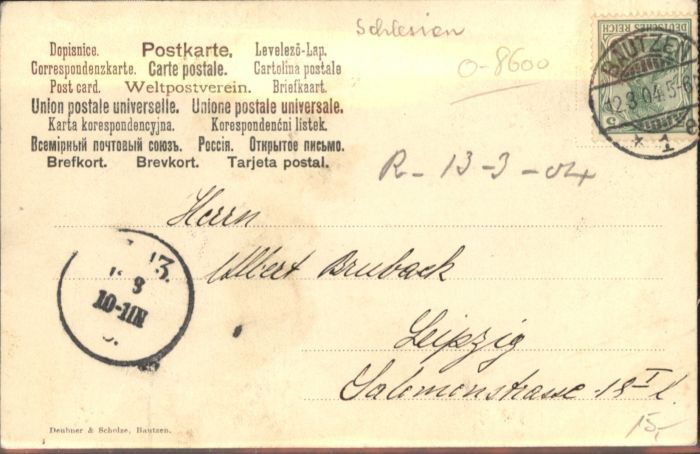 Schlesien
Dopisnice. Postkarte. Levelező-Lap.
Correspondenzkarte. Carte postale. Cartolina postale
Post card. Weltpostverein. Briefkaart.
Union postale universelle. Unione postale universale.
Karta korespondencyjna. Korespondenční listek.
Всемірный почтовый союзъ. Россія. Открытое письмо.
Brefkort. Brevkort. Tarjeta postal.
0-8600
DEUTSCHES REICH
5
BAUTZEN
12.3.04.5-6
* 1
R- 13-3-04
Herrn
Albert Bruback
Leipzig
Salomonstrasse 18 I l.
13.
3
10-11N
15,-
Deubner & Scholze, Bautzen.